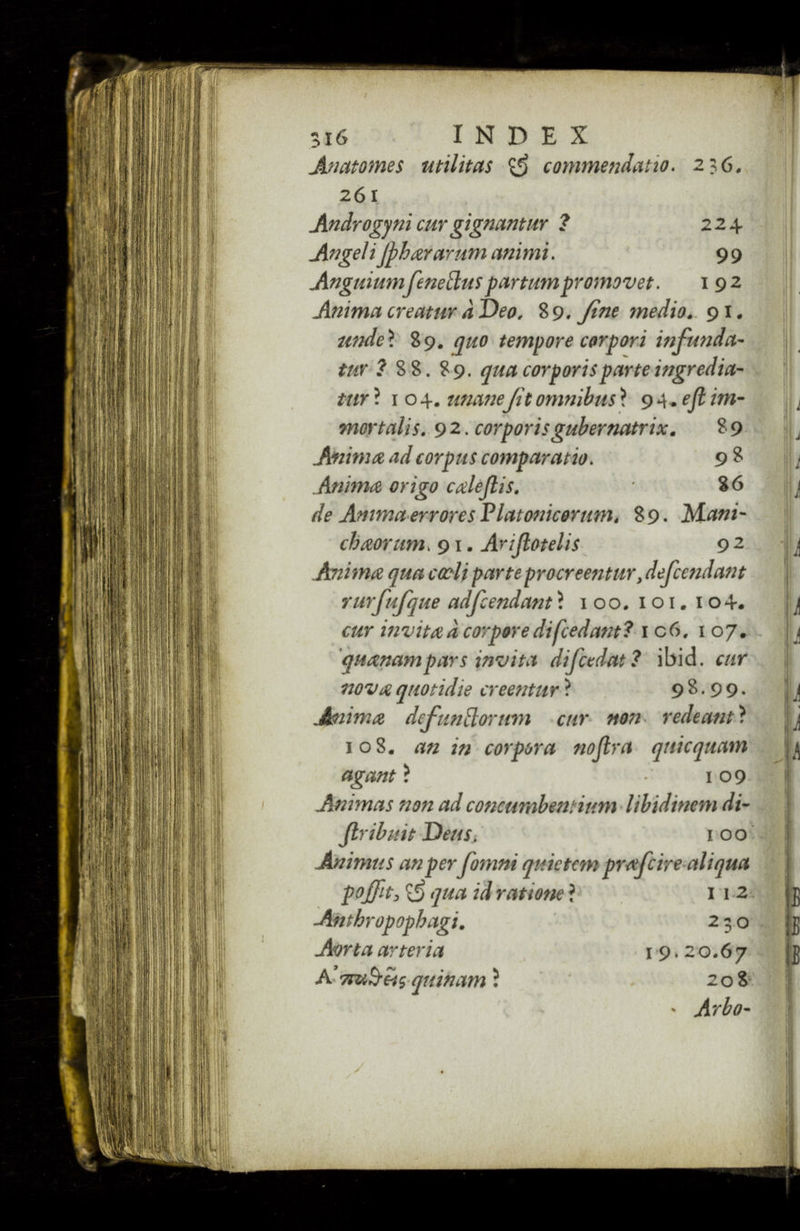 316 INDEX
Anatomes utilitas & commendatio. 236.
261
Androgyni cur gignantur ? 224
Angeli ſphærarum animi. 99
Anguium ſenectus partum promovet. 192
Anima creatur à Deo. 89. ſine medio. 91.
unde? 89. quo tempore corpori infunda-
tur ? 88. 89. qua corporis parte ingredia-
tur? 104. unane ſit omnibus? 94. eſt im-
mortalis. 92. corporis gubernatrix. 89
Animæ ad corpus comparatio. 98
Animæ origo cæleſtis. 86
de Anima errores Platonicorum. 89. Mani-
chæorum. 91. Ariſtotelis 92
Animæ qua cœli parte procreentur, deſcendant
rurſuſque adſcendant? 100. 101. 104.
cur invitæ à corpore diſcedant? 106. 107.
quænam pars invita diſcedat? ibid. cur
novæ quotidie creentur? 98. 99.
Animæ defunctorum cur non redeant?
108. an in corpora noſtra quicquam
agant? 109
Animas non ad concumbentium libidinem di-
ſtribuit Deus. 100
Animus an per ſomni quietem præſcire aliqua
poſſit, & qua id ratione? 112
Anthropophagi. 230
Aorta arteria 19. 20. 67
quinam? 208
Arbo-
B
B
B